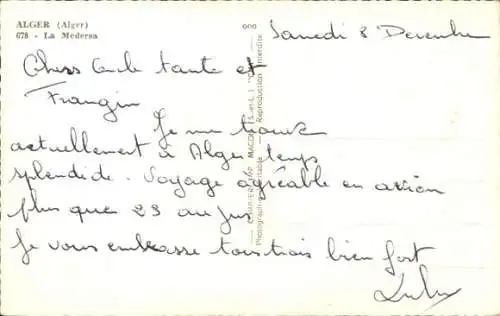 ALGER (Alger)
678 - La Medersa
Samedi 8 Decembre
Chers Oncle tante et
Frangin
Je me trouve
actuellement à Alger temps
splendide. Voyage agréable en avion
plus que 23 au jus
Je vous embrasse tous trois bien fort
COMBIER IMP. MACON (S.-et-L.)
Photographie véritable - Reproduction interdite